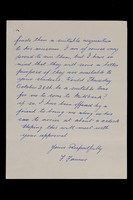 finds them a suitable acquisition
to the museum. I am of course very
proud to own them, but I have no
need that they will serve a better
purpose if they are available to
your students. Would Thursday
October 26th be a suitable time
for me to come to
if so I have been offered by a
friend to bring me along unless
was to arrive at about a o'clock
Hoping this will meet with
your approval
Yours Respectfully